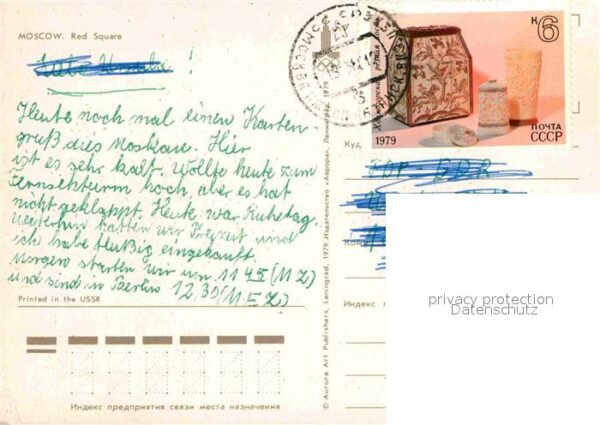 MOSCOW. Red Square
!
Heute noch mal einen Karten-
gruß dies Moskau. Hier
ist es sehr kalt. Wollte heute zum
Fernsehturm hoch, aber es hat
nicht geklappt. Heute war Ruhetag.
hatten wir Freizeit und
ich habe fleißig eingekauft.
Morgen starten wir um 11 45 (MZ)
und sind in Berlin 12.30 (MEZ)
Printed in the USSR
Индекс предприятия связи места назначения
© Aurora Art Publishers, Leningrad, 1979. Издательство «Аврора», Ленинград, 1979
К 6
1979
ПОЧТА
СССР
Куда
DDR
Индекс
privacy protection
Datenschutz